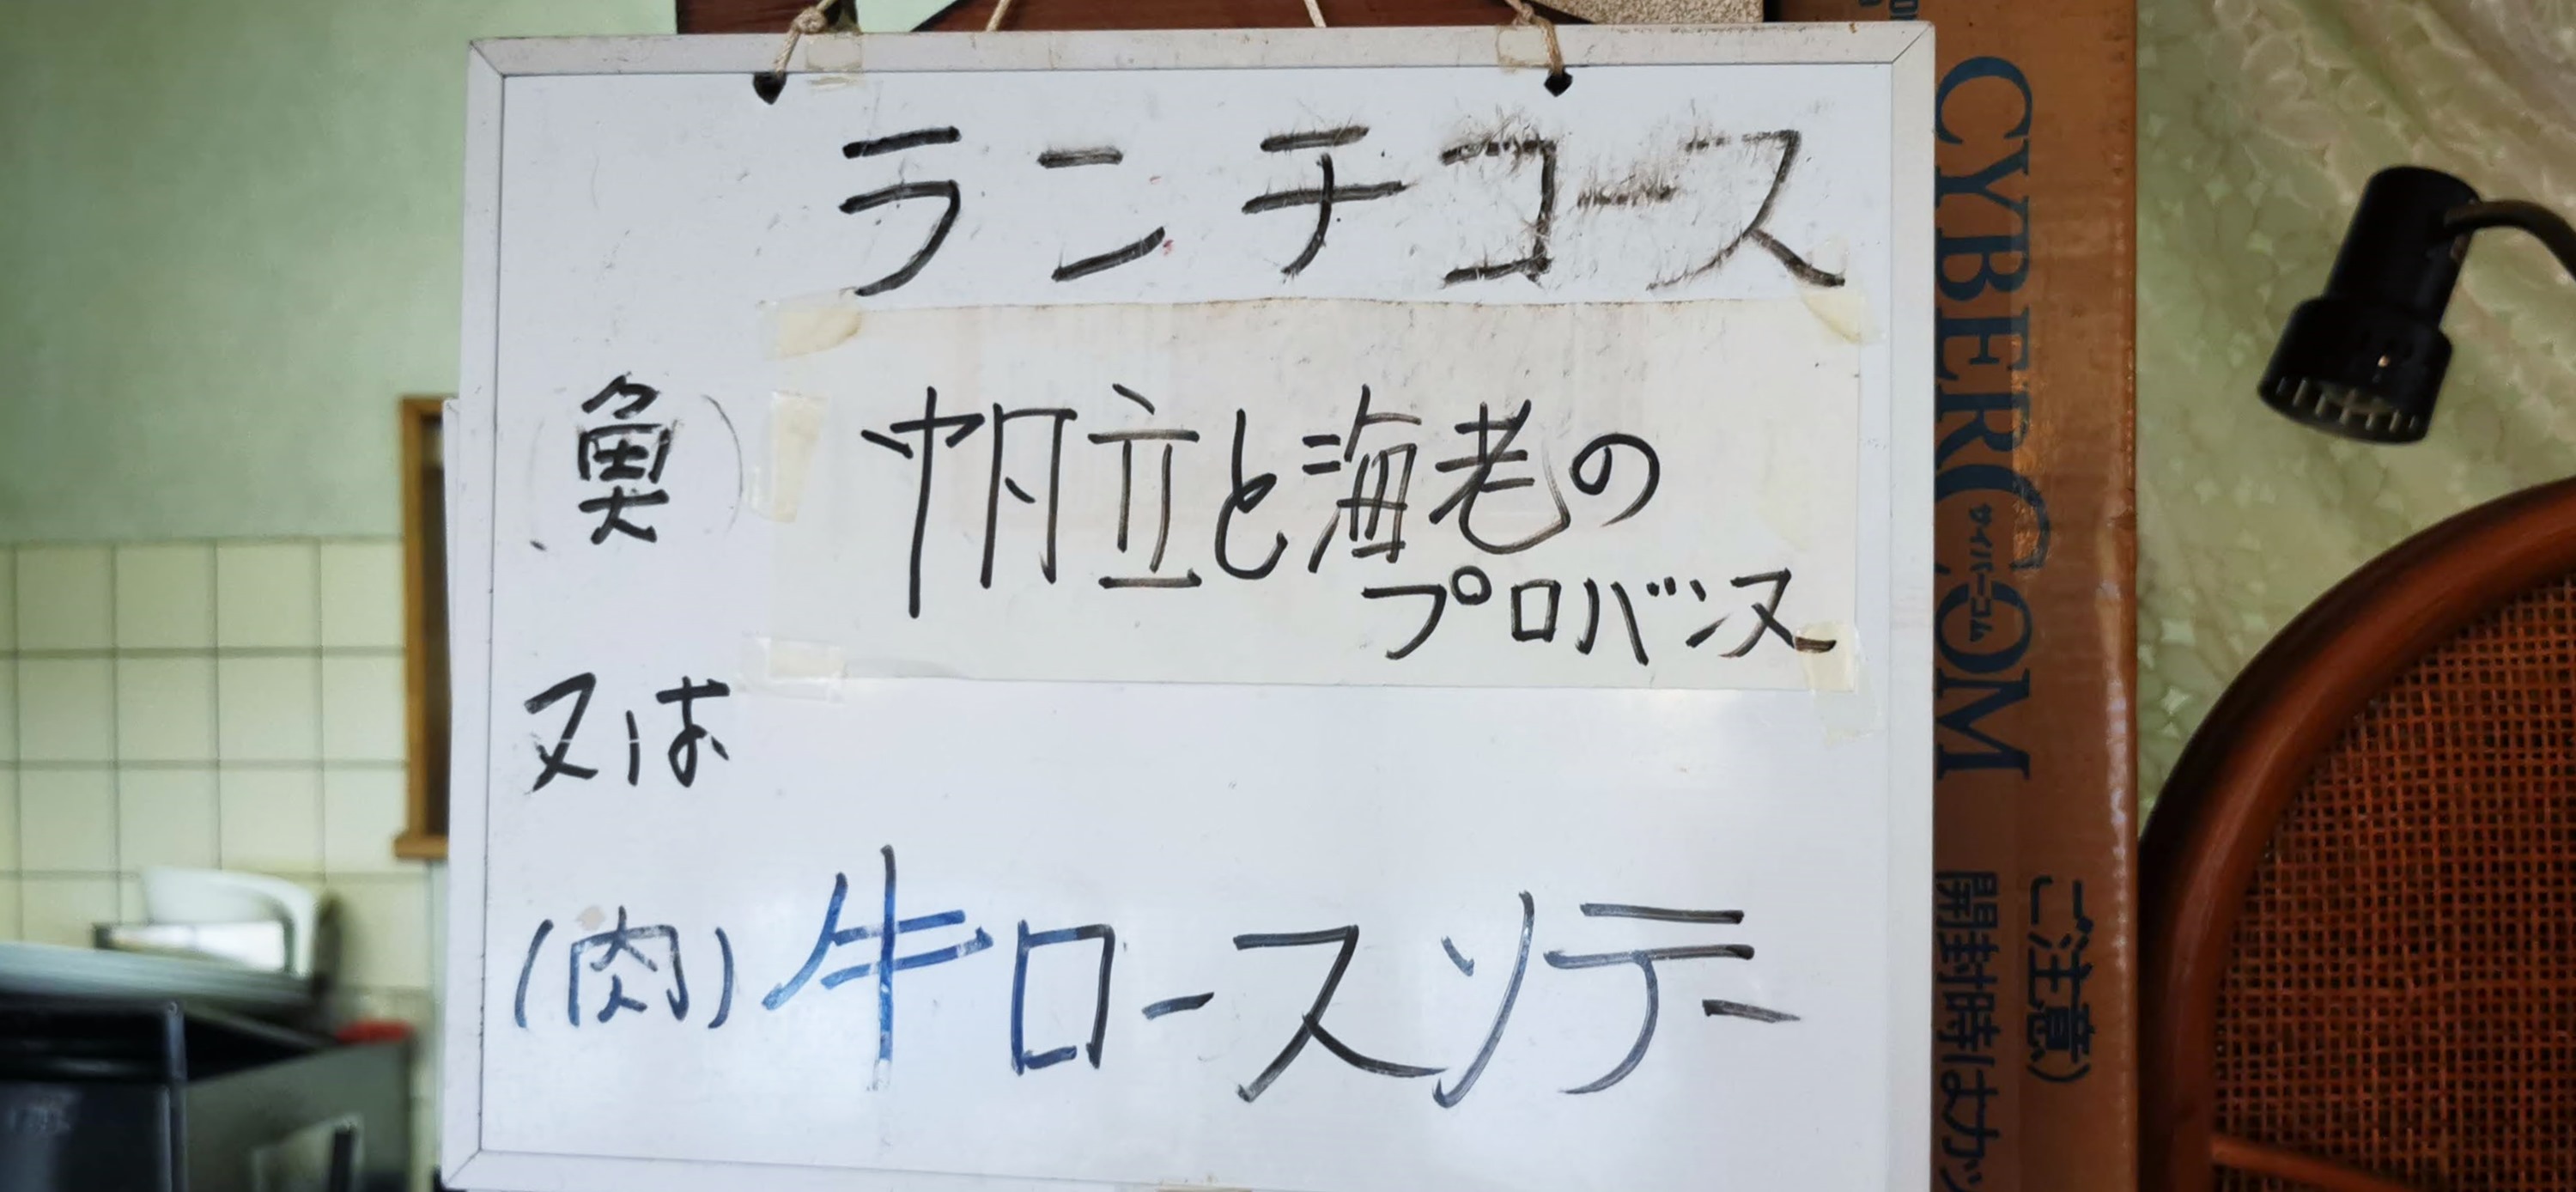 ランチコース
(魚) 帆立と海老の
プロバンス
又は
(肉) 牛ロースソテー
CYBERCOM
サイバーコム
ご注意)
開封時はカッ